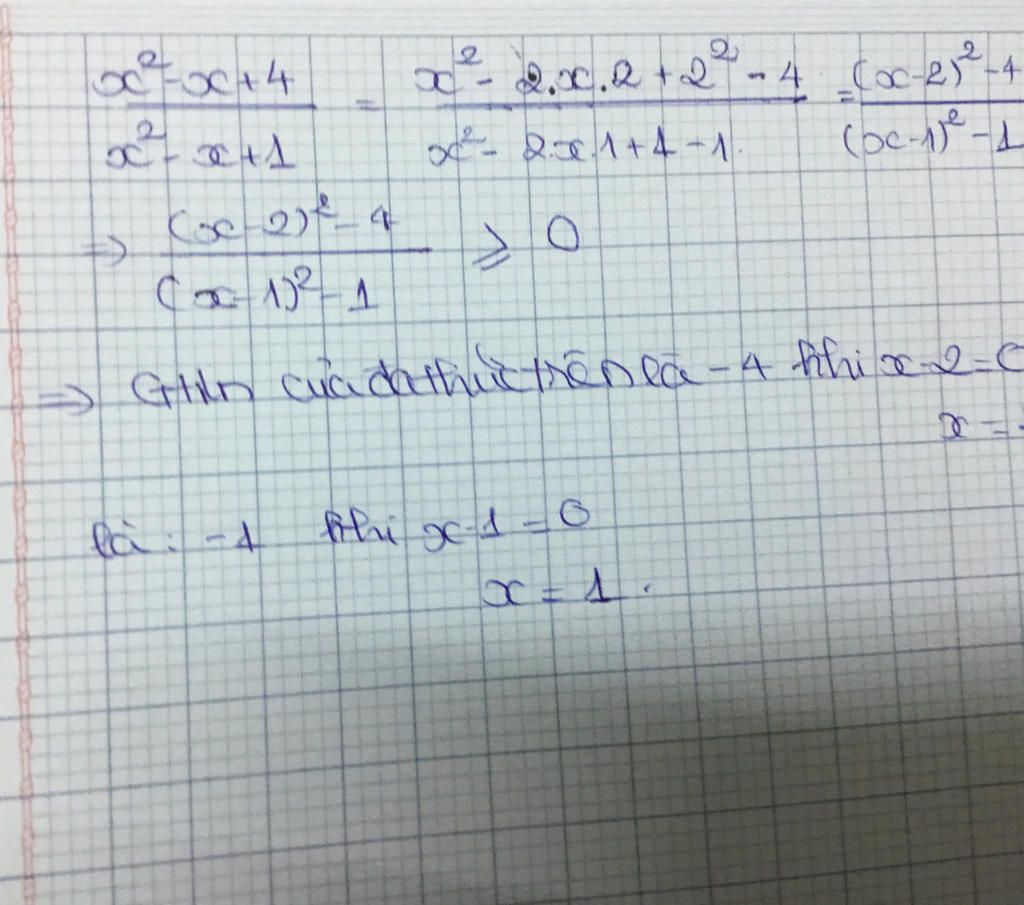 x² - x + 4 / x² - x + 1 = x² - 2.x.2 + 2² - 4 / x² - 2x.1 + 1 - 1. = (x-2)² - 4 / (x-1)² - 1
=> (x-2)² - 4 / (x-1)² - 1 ⩾ 0
=> GTNN của đa thức trên là -4 khi x-2=0
x =
là: -1 khi x-1 = 0
x = 1.